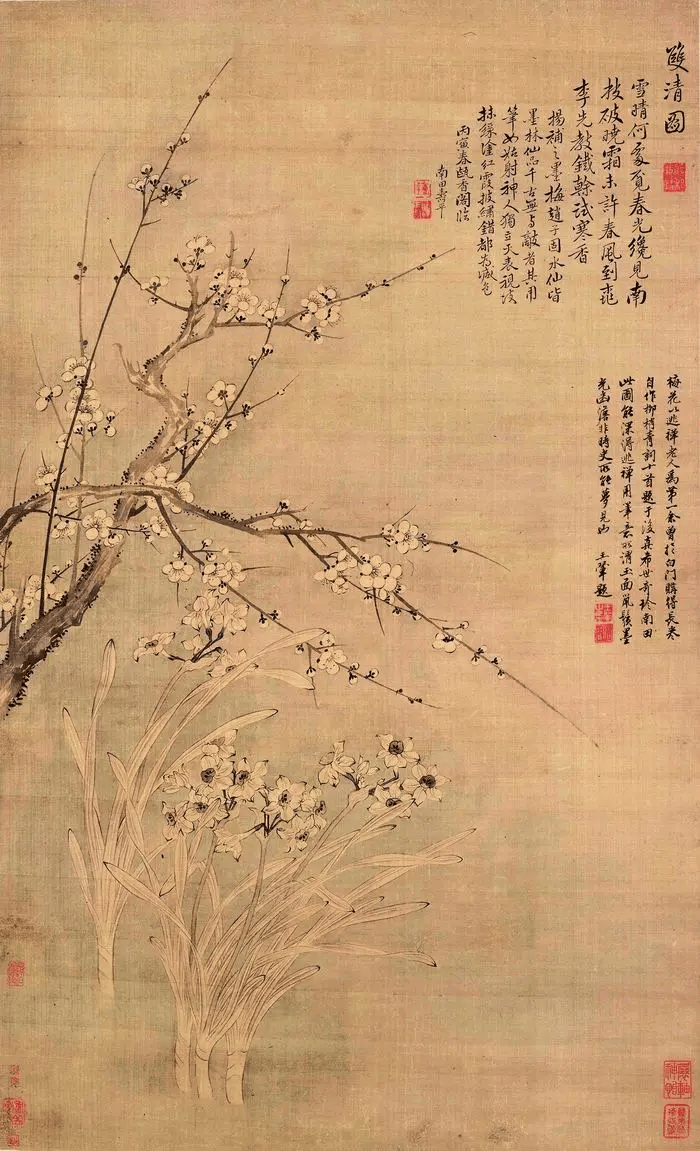 雙清圖
雪晴何處覓春光纔見南
枝破曉霜未許春風到桃
李先教鐵幹試寒香
揚補之墨梅趙子固水仙皆
墨林仙品千古無與敵者其用
筆如姑射神人獨立天表視
抹綠塗紅霞披繡錯都為減色
丙寅春甌香閣臨
南田壽平
梅花以逃禪老人為第一余曾於白門購得長卷
自作柳梢青詞十首題于後真希世奇珍南田
此圖能深得逃禪用筆意所謂玉面鼠鬚墨
光幽澹非時史所能夢見也 王翬題